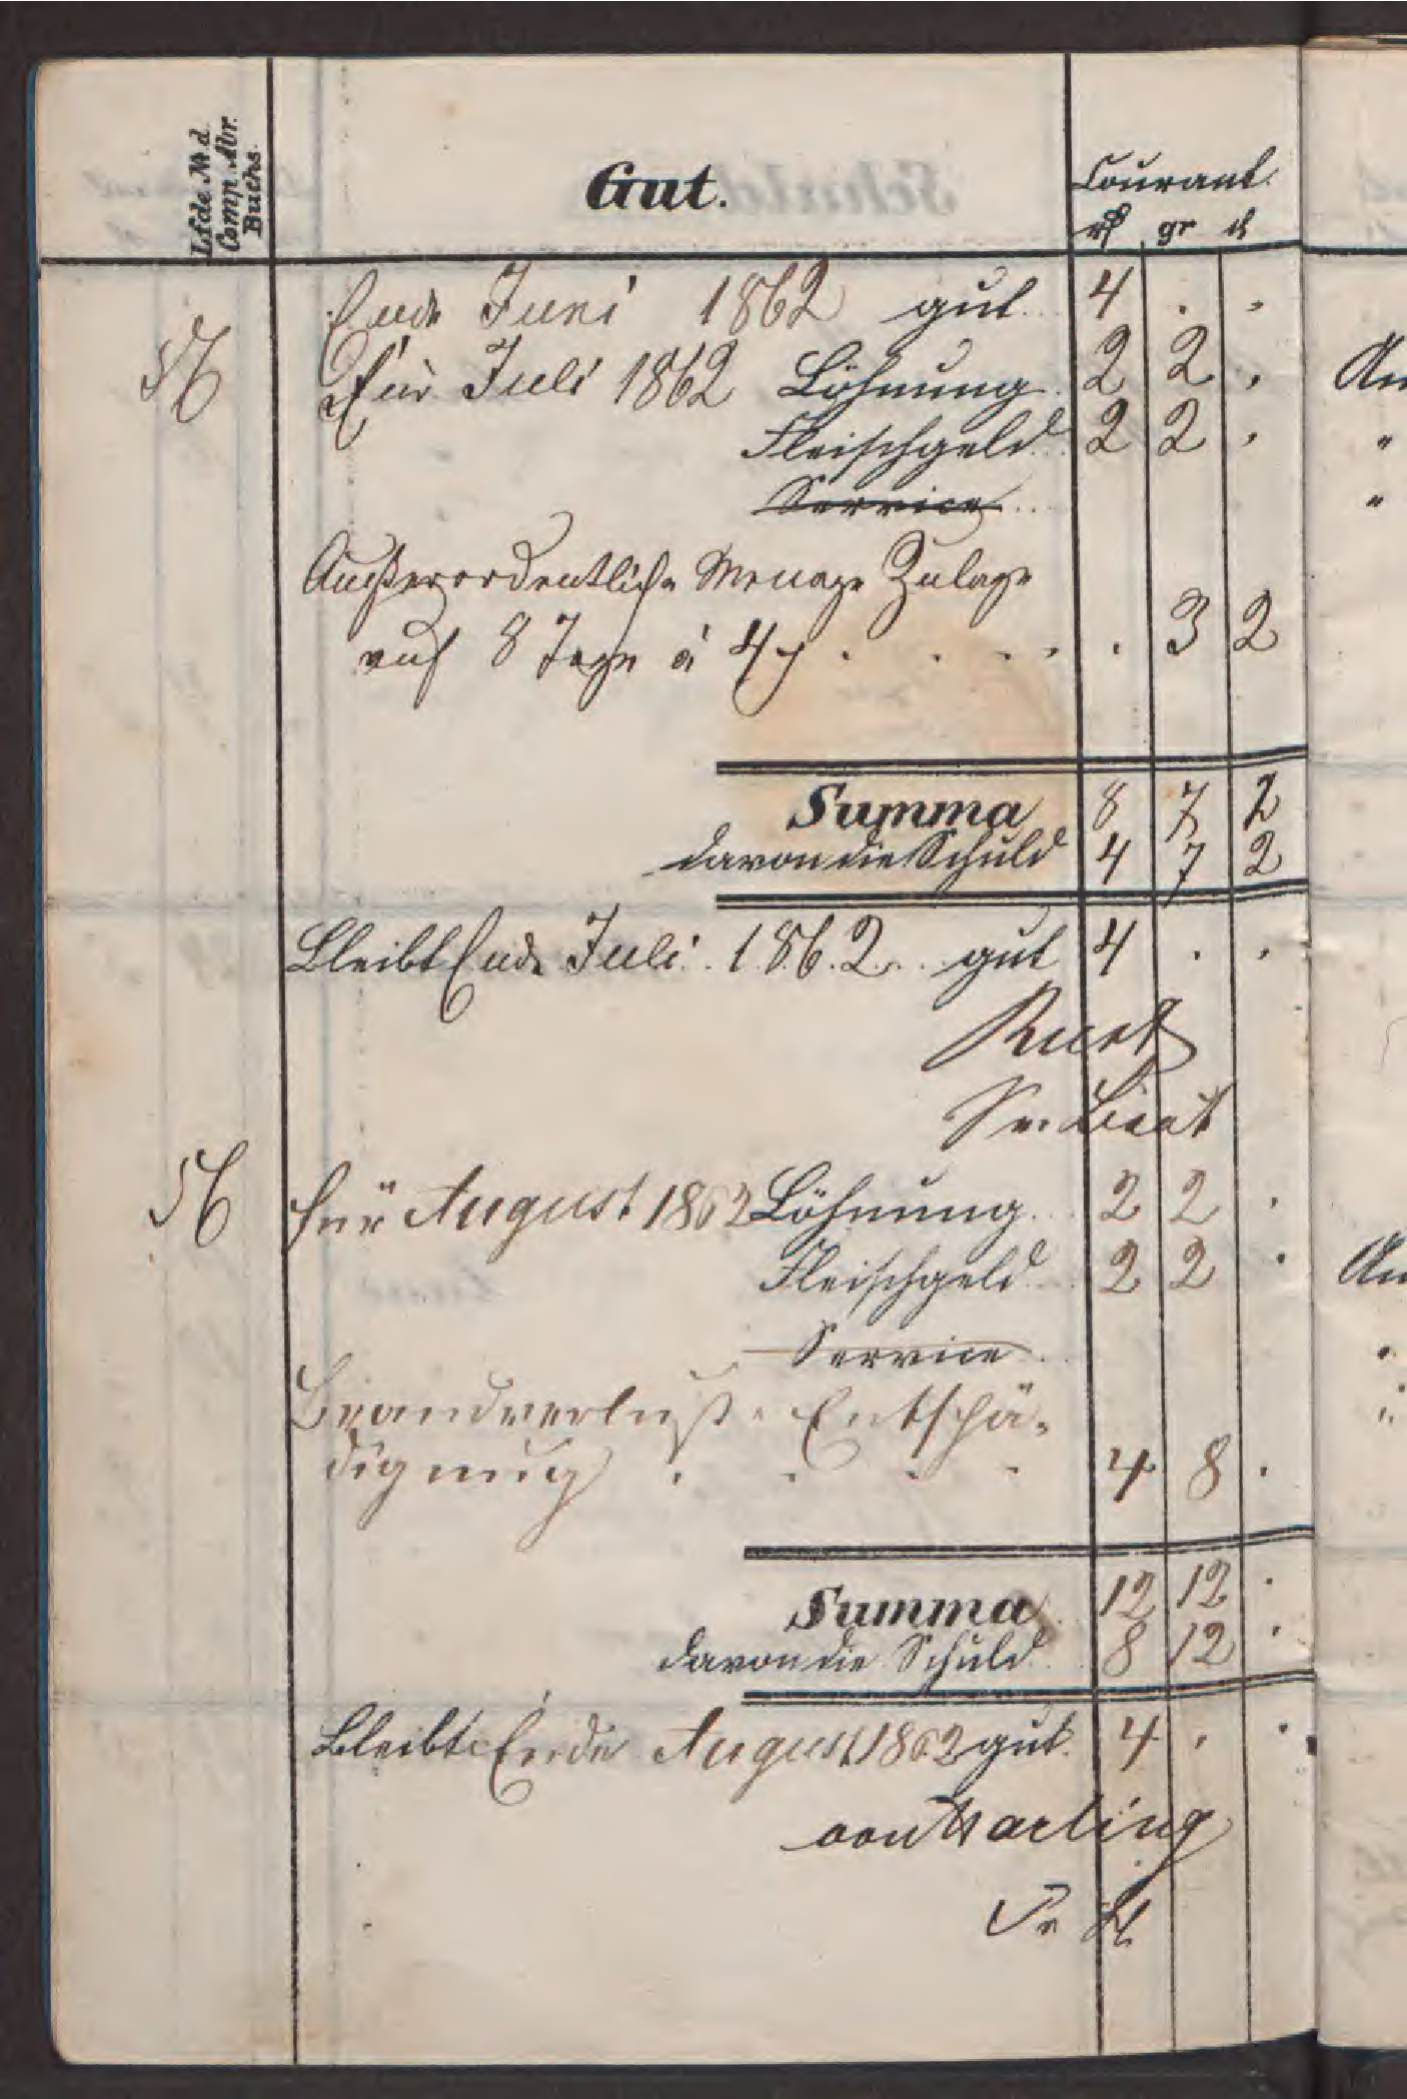 Lfde. № d.
Comp. Abr.
Buchs.
Gut.
Courant
rℓ gr ₰
Ende Juni 1862 gut 4 . .
56 Für Juli 1862 Löhnung 2 2 .
Fleischgeld 2 2 .
Service
Außerordentliche Menage Zulage
auf 8 Tage à 4 ₰ . . . . . 3 2
Summa 8 7 2
davon die Schuld 4 7 2
Bleibt Ende Juli 1862 gut 4 . .
Pr. Lieut
56 für August 1862 Löhnung 2 2 .
Fleischgeld 2 2 .
Service
Brandverlust-Entschä-
digung . . . . 4 8 .
Summa 12 12 .
davon die Schuld 8 12 .
Bleibt Ende August 1862 gut 4 . .
von Harling
Pr Lt
An
"
"
An
"
"